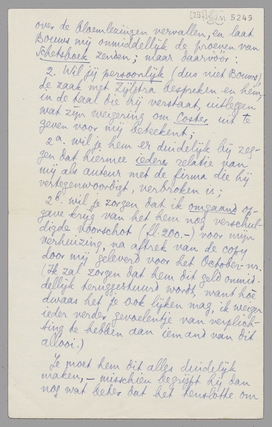 5249
over de Bloemlezingen vervallen, en laat
Bouws mij onmiddellijk de proeven van
Schetsboek zenden; maar daarvoor:
2. Wil jij persoonlijk (dus niet Bouws)
de zaak met Zijlstra bespreken en hem,
in de taal die hij verstaat, uitleggen
wat zijn weigering om Coster uit te
geven voor mij beteekent;
2a. wil je hem er duidelijk bij zeg-
gen dat hiermee iedere relatie van
mij als auteur met de firma die hij
vertegenwoordigt, verbroken is;
2b. wil je zorgen dat ik omgaand op-
gave krijg van het hem nog verschul-
digde voorschot (fl. 200.–) voor mijn
verhuizing, na aftrek van de copy
door mij geleverd voor het October-nr.
(Ik zal zorgen dat hem dit geld onmid-
dellijk teruggestuurd wordt, want hoe
dwaas het je ook lijken mag, ik weiger
ieder verder gevoelentje van verplich-
ting te hebben aan iemand van dit
allooi.)
Je moet hem dit alles duidelijk
maken, – misschien begrijpt hij dan
nog wat beter dat het tenslotte om